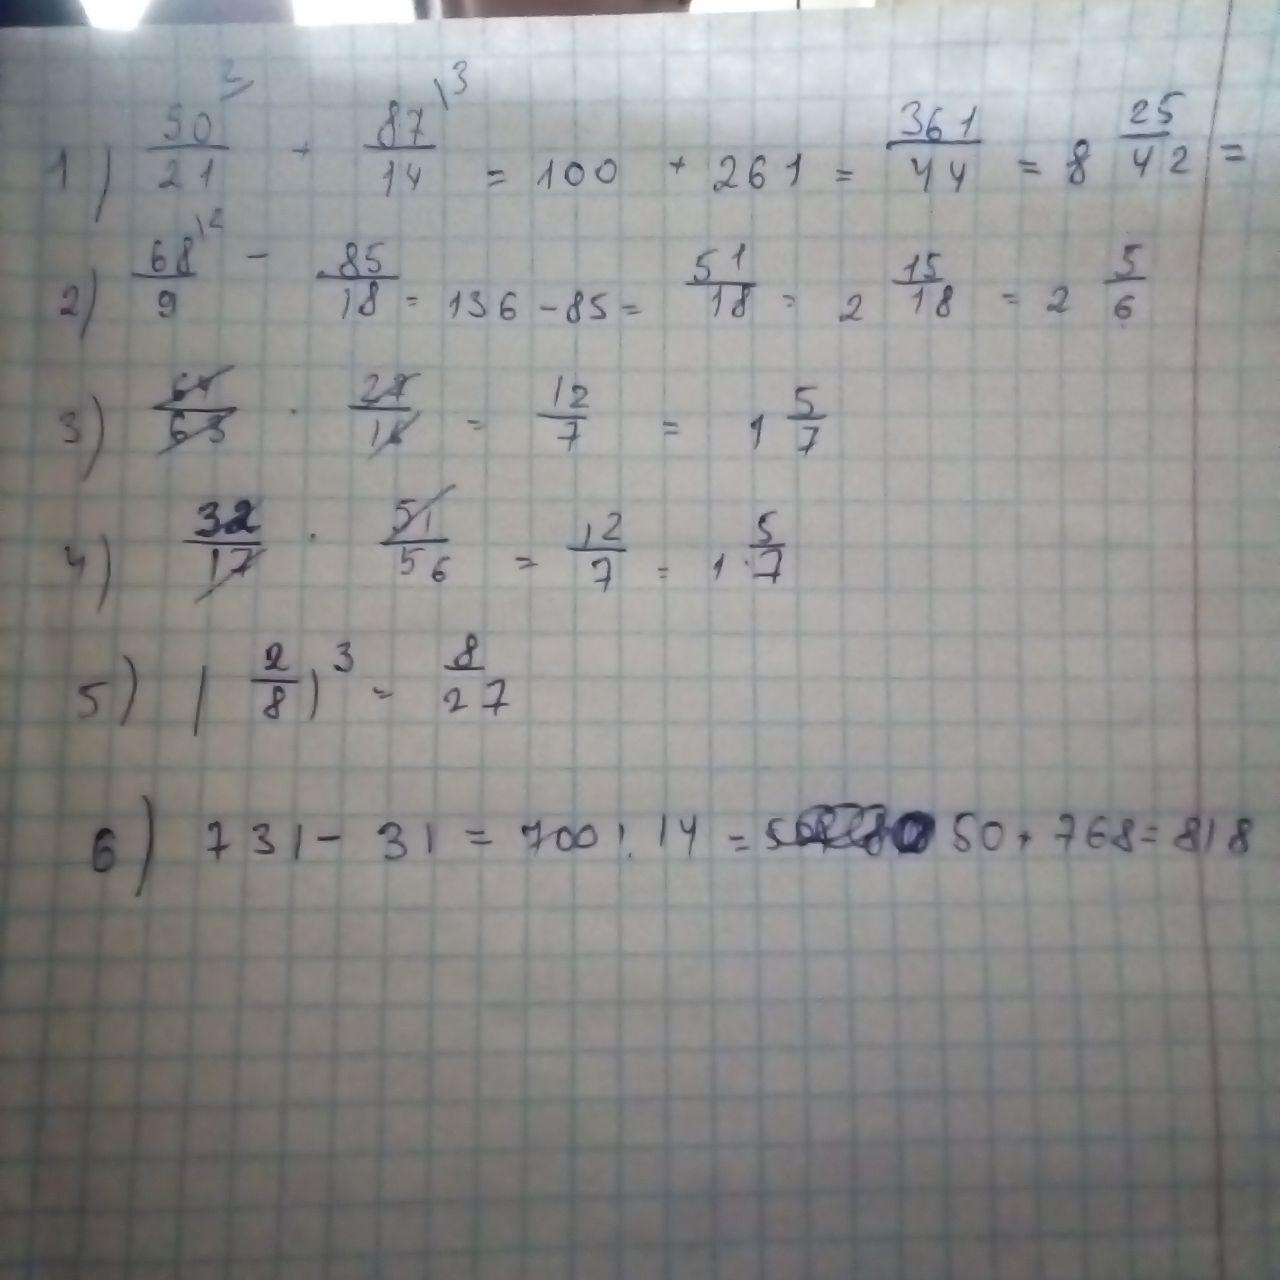 1) 50/21 \2 + 87/14 \3 = 100 + 261 = 361/44 = 8 25/42 =
2) 68/9 \2 - 85/18 = 136 - 85 = 51/18 = 2 15/18 = 2 5/6
3) 64/63 · 27/16 = 12/7 = 1 5/7
4) 32/17 · 51/56 = 12/7 = 1 5/7
5) (2/8)^3 = 8/27
6) 731 - 31 = 700 : 14 = 50 + 768 = 818